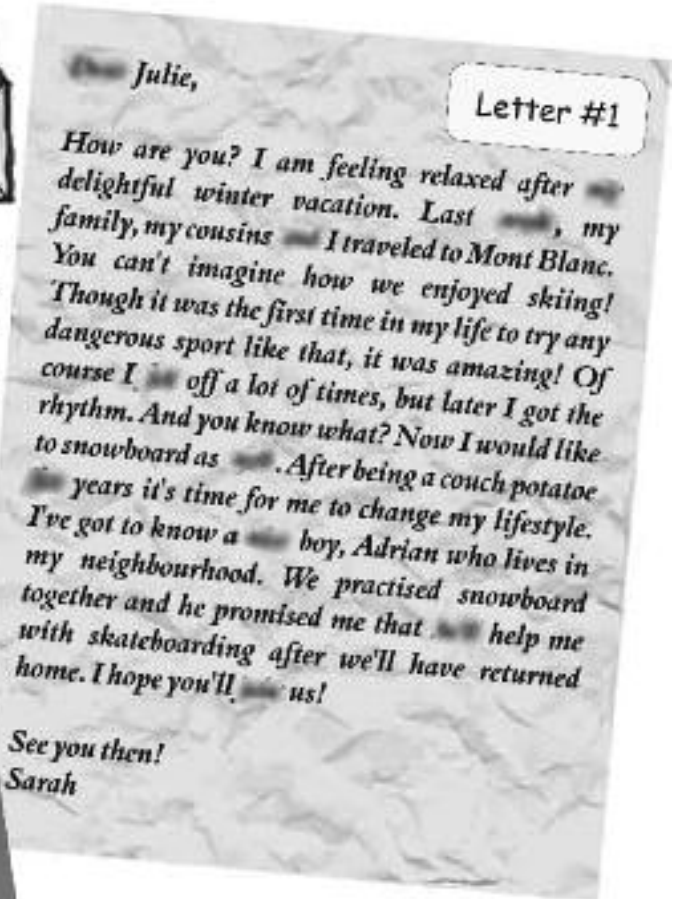 Julie,
Letter #1
How are you? I am feeling relaxed after
delightful winter vacation. Last , my
family, my cousins I traveled to Mont Blanc.
You can't imagine how we enjoyed skiing!
Though it was the first time in my life to try any
dangerous sport like that, it was amazing! Of
course I off a lot of times, but later I got the
rhythm. And you know what? Now I would like
to snowboard as . After being a couch potatoe
years it's time for me to change my lifestyle.
I've got to know a boy, Adrian who lives in
my neighbourhood. We practised snowboard
together and he promised me that help me
with skateboarding after we'll have returned
home. I hope you'll us!
See you then!
Sarah